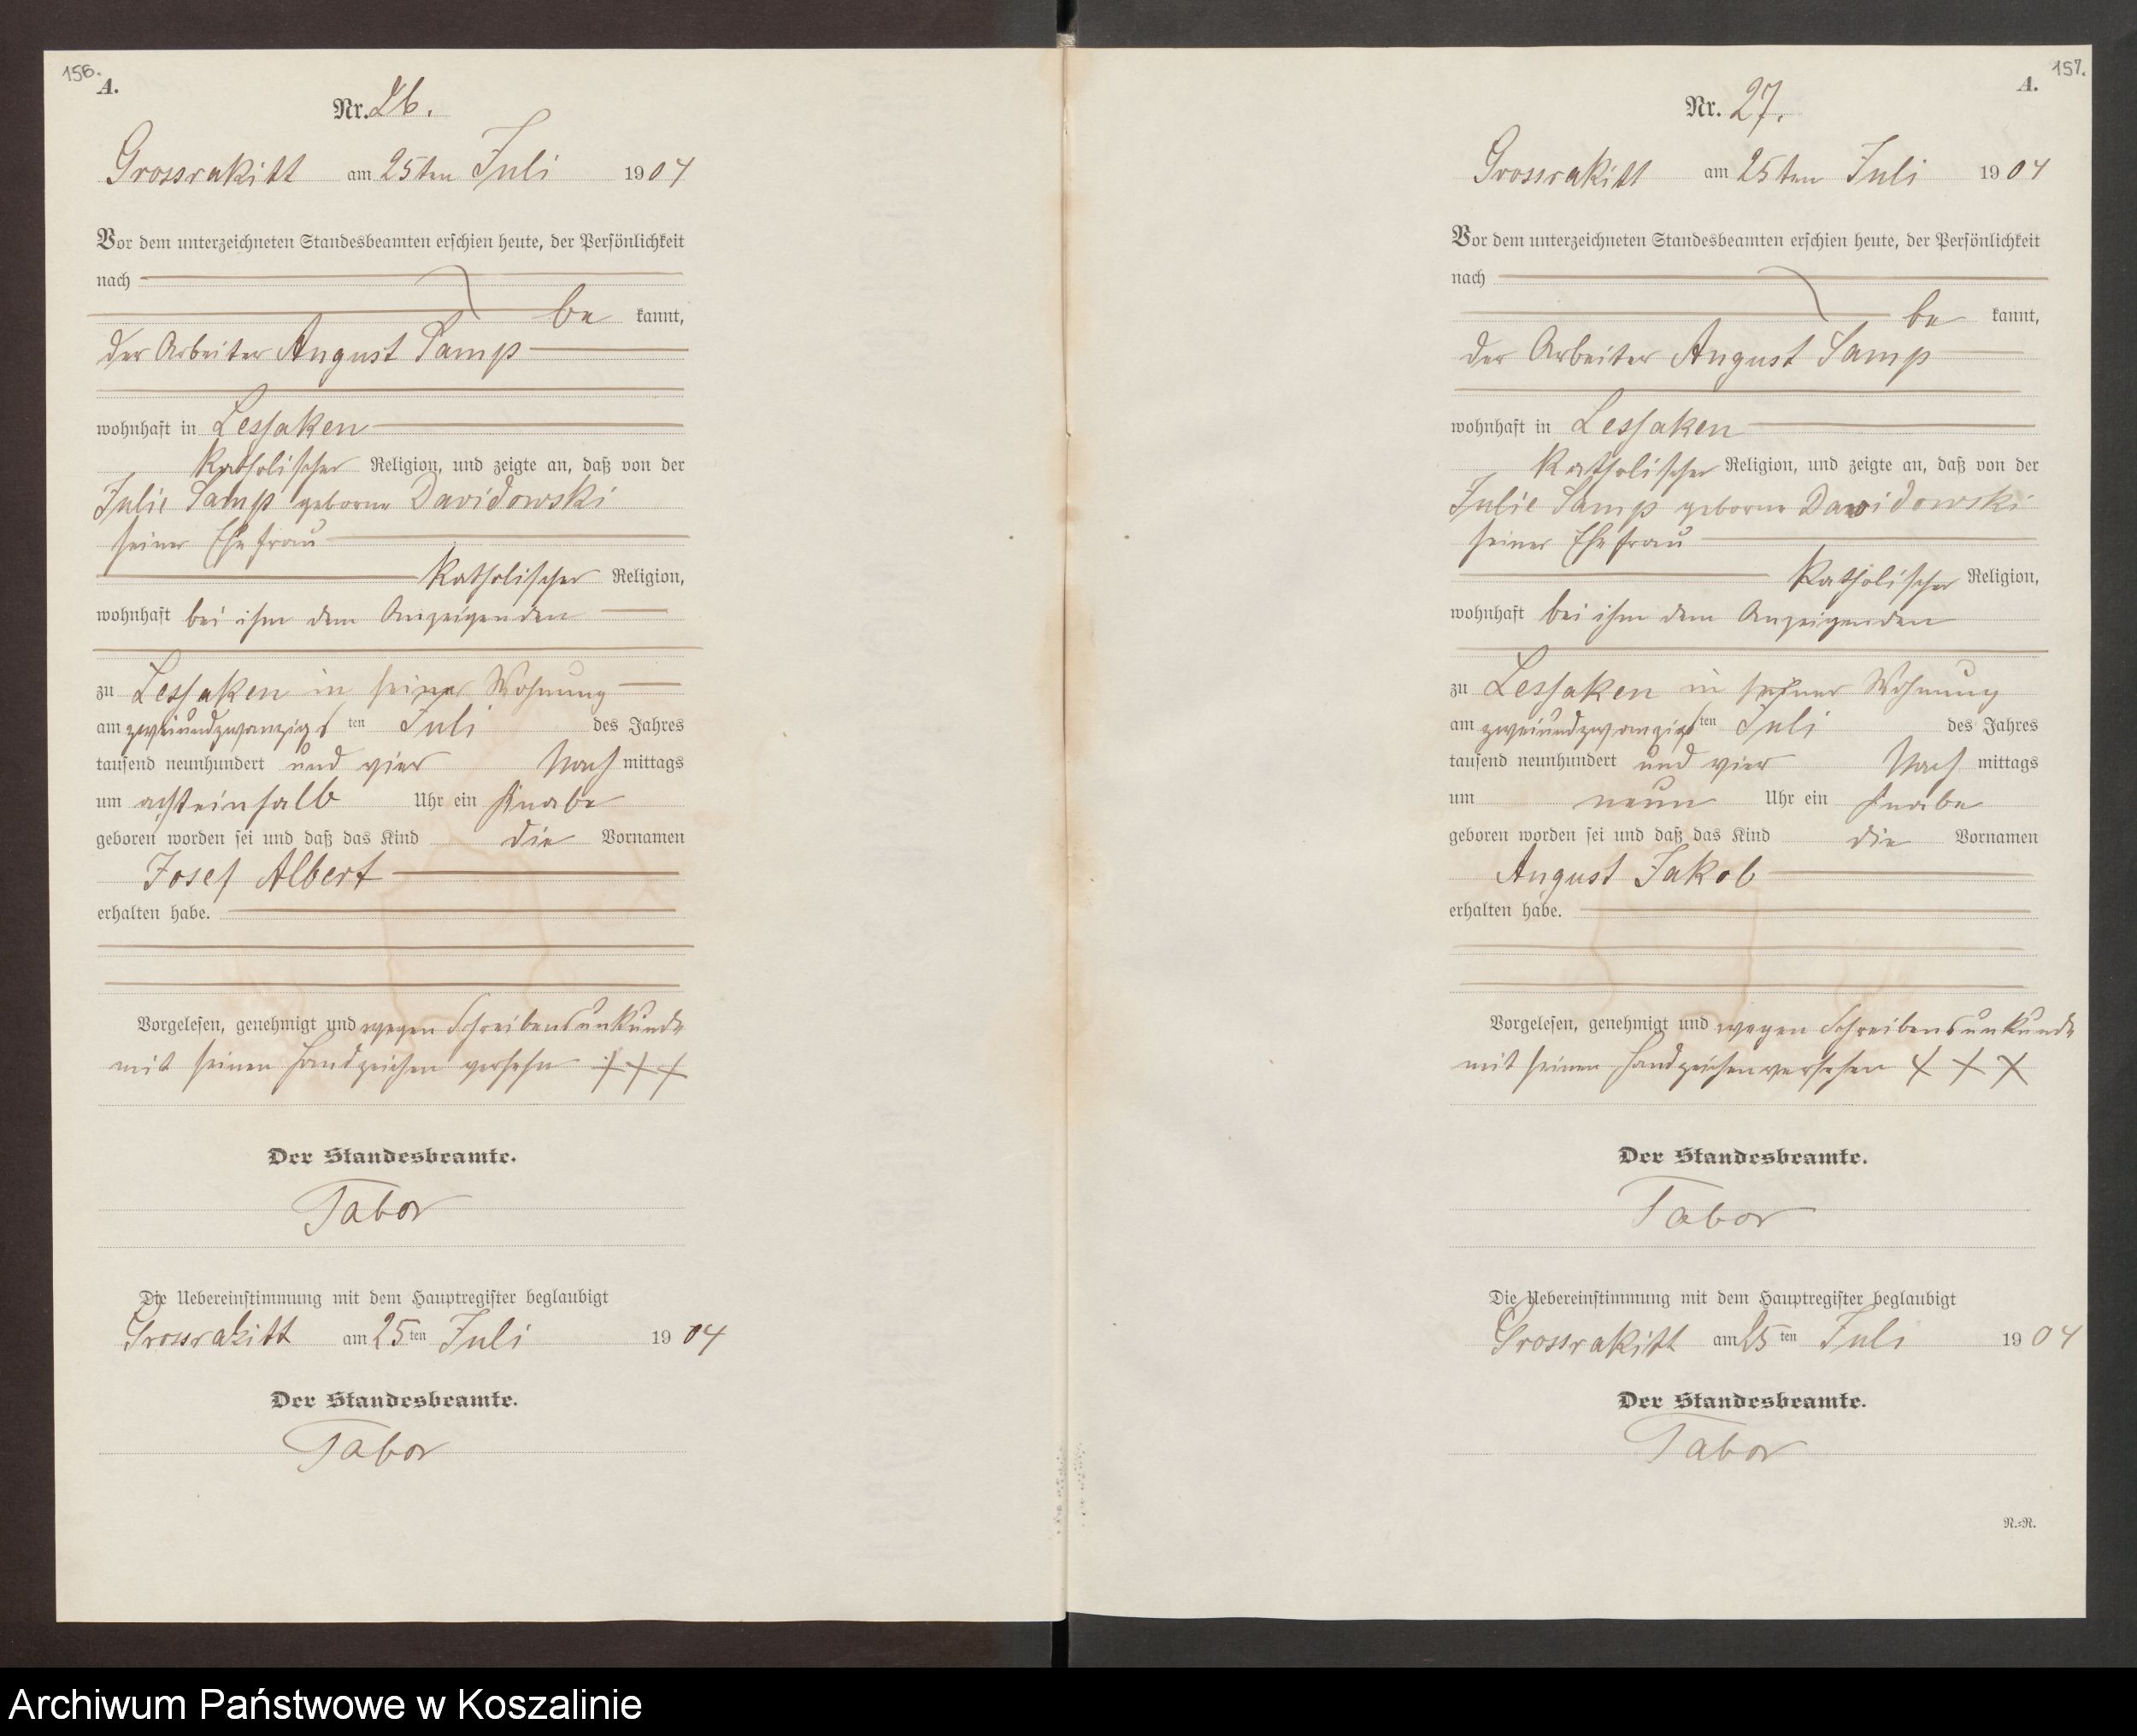 156.
A.
Nr. 26.
Grossrakitt am 25ten Juli 1904
Vor dem unterzeichneten Standesbeamten erschien heute, der Persönlichkeit
nach
be kannt,
der Arbeiter August Samp
wohnhaft in Lessaken
katholischer Religion, und zeigte an, daß von der
Julie Samp geborne Davidowski
seiner Ehefrau
katholischer Religion,
wohnhaft bei ihm dem Anzeigenden
zu Lessaken in seiner Wohnung
am zweiundzwanzigsten Juli des Jahres
tausend neunhundert und vier Nach mittags
um achteinhalb Uhr ein Knabe
geboren worden sei und daß das Kind die Vornamen
Josef Albert
erhalten habe.
Vorgelesen, genehmigt und wegen Schreibensunkunde
mit seinen Handzeichen versehn +++
Der Standesbeamte.
Tabor
Die Uebereinstimmung mit dem Hauptregister beglaubigt
Grossrakitt am 25ten Juli 1904
Der Standesbeamte.
Tabor
157.
A.
Nr. 27.
Grossrakitt am 25ten Juli 1904
Vor dem unterzeichneten Standesbeamten erschien heute, der Persönlichkeit
nach
be kannt,
der Arbeiter August Samp
wohnhaft in Lessaken
katholischer Religion, und zeigte an, daß von der
Julie Samp geborne Davidowski
seiner Ehefrau
katholischer Religion,
wohnhaft bei ihm dem Anzeigenden
zu Lessaken in seiner Wohnung
am zweiundzwanzigsten Juli des Jahres
tausend neunhundert und vier Nach mittags
um neun Uhr ein Knabe
geboren worden sei und daß das Kind die Vornamen
August Jakob
erhalten habe.
Vorgelesen, genehmigt und wegen Schreibensunkunde
mit seinen Handzeichen versehen + + +
Der Standesbeamte.
Tabor
Die Uebereinstimmung mit dem Hauptregister beglaubigt
Grossrakitt am 25ten Juli 1904
Der Standesbeamte.
Tabor
N.=N.
Archiwum Państwowe w Koszalinie